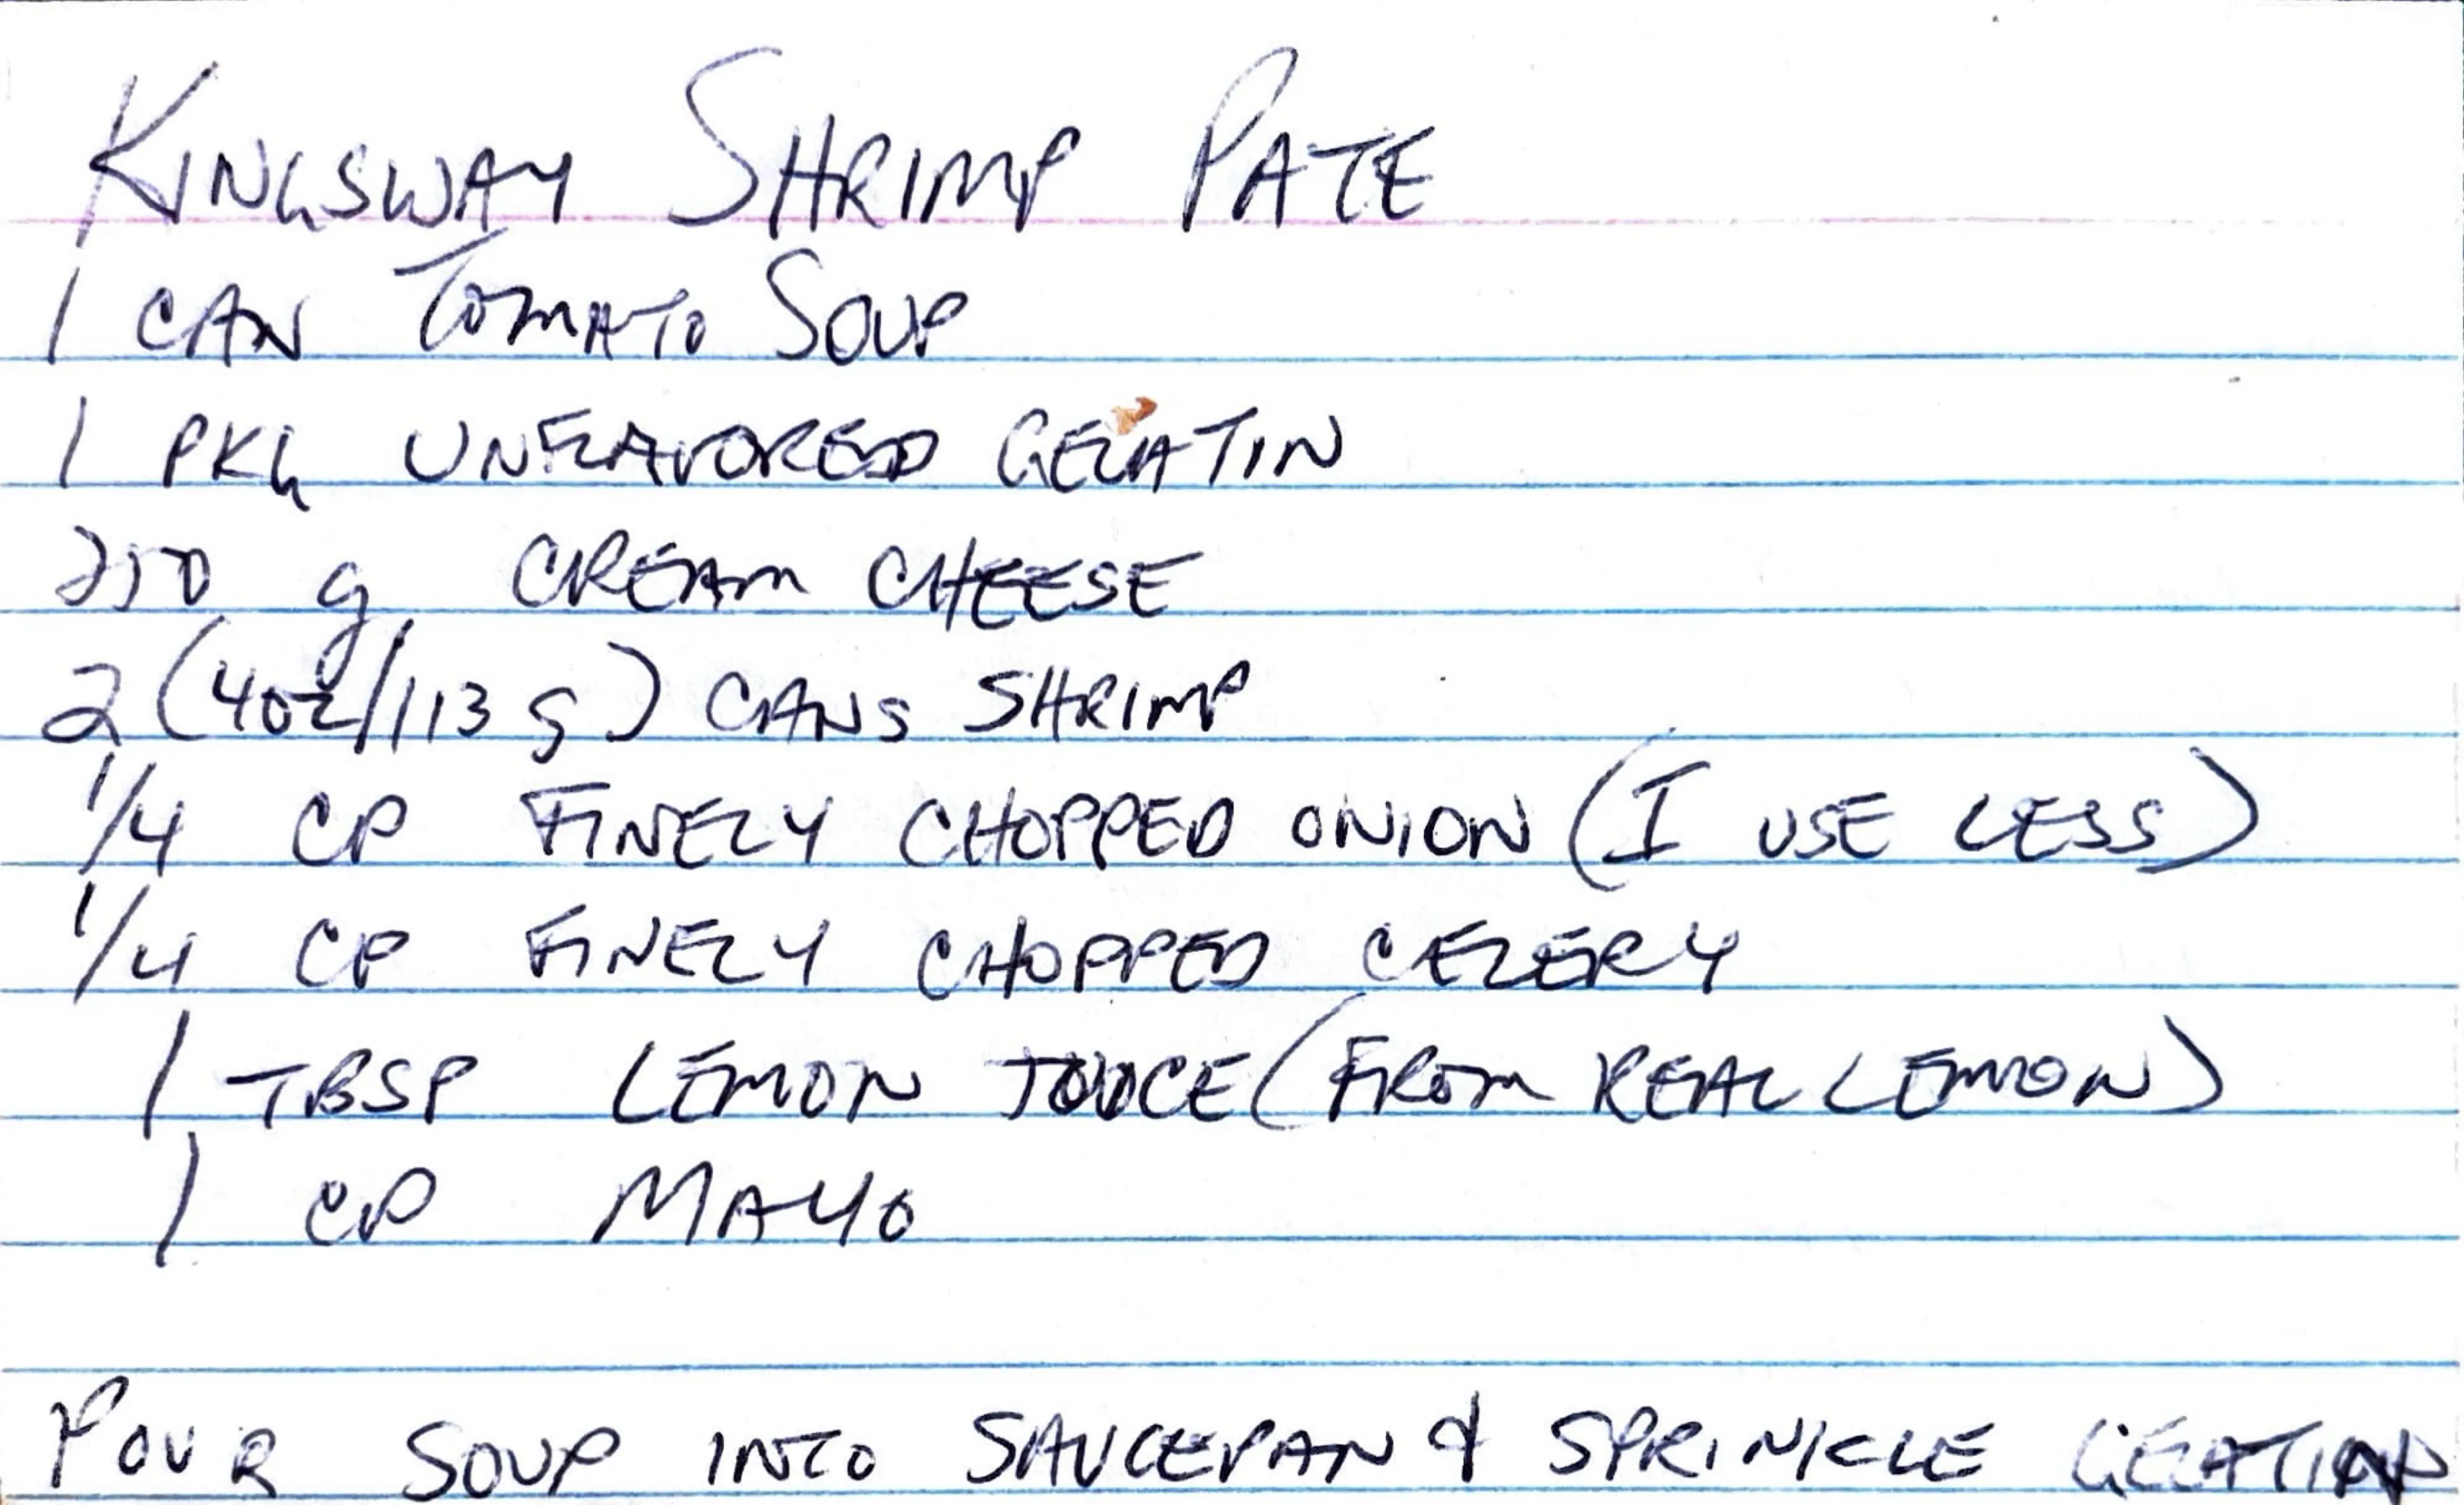 KINGSWAY SHRIMP PATE
1 CAN TOMATO SOUP
1 PKG UNFLAVORED GELATIN
250 g CREAM CHEESE
2 (4oz/113 g) CANS SHRIMP
1/4 CP FINELY CHOPPED ONION (I USE LESS)
1/4 CP FINELY CHOPPED CELERY
1 TBSP LEMON JUICE (FROM REAL LEMON)
1 CP MAYO
POUR SOUP INTO SAUCEPAN & SPRINKLE GELATIN